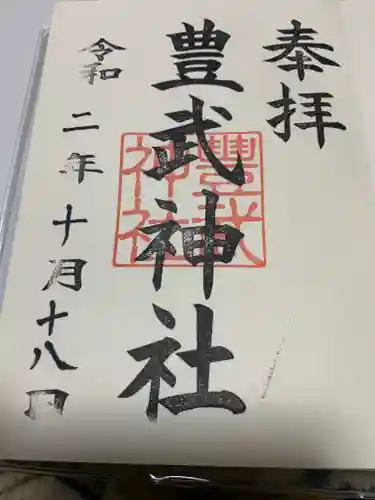 奉拝
豊武神社
豊武神社
令和二年十月十八日